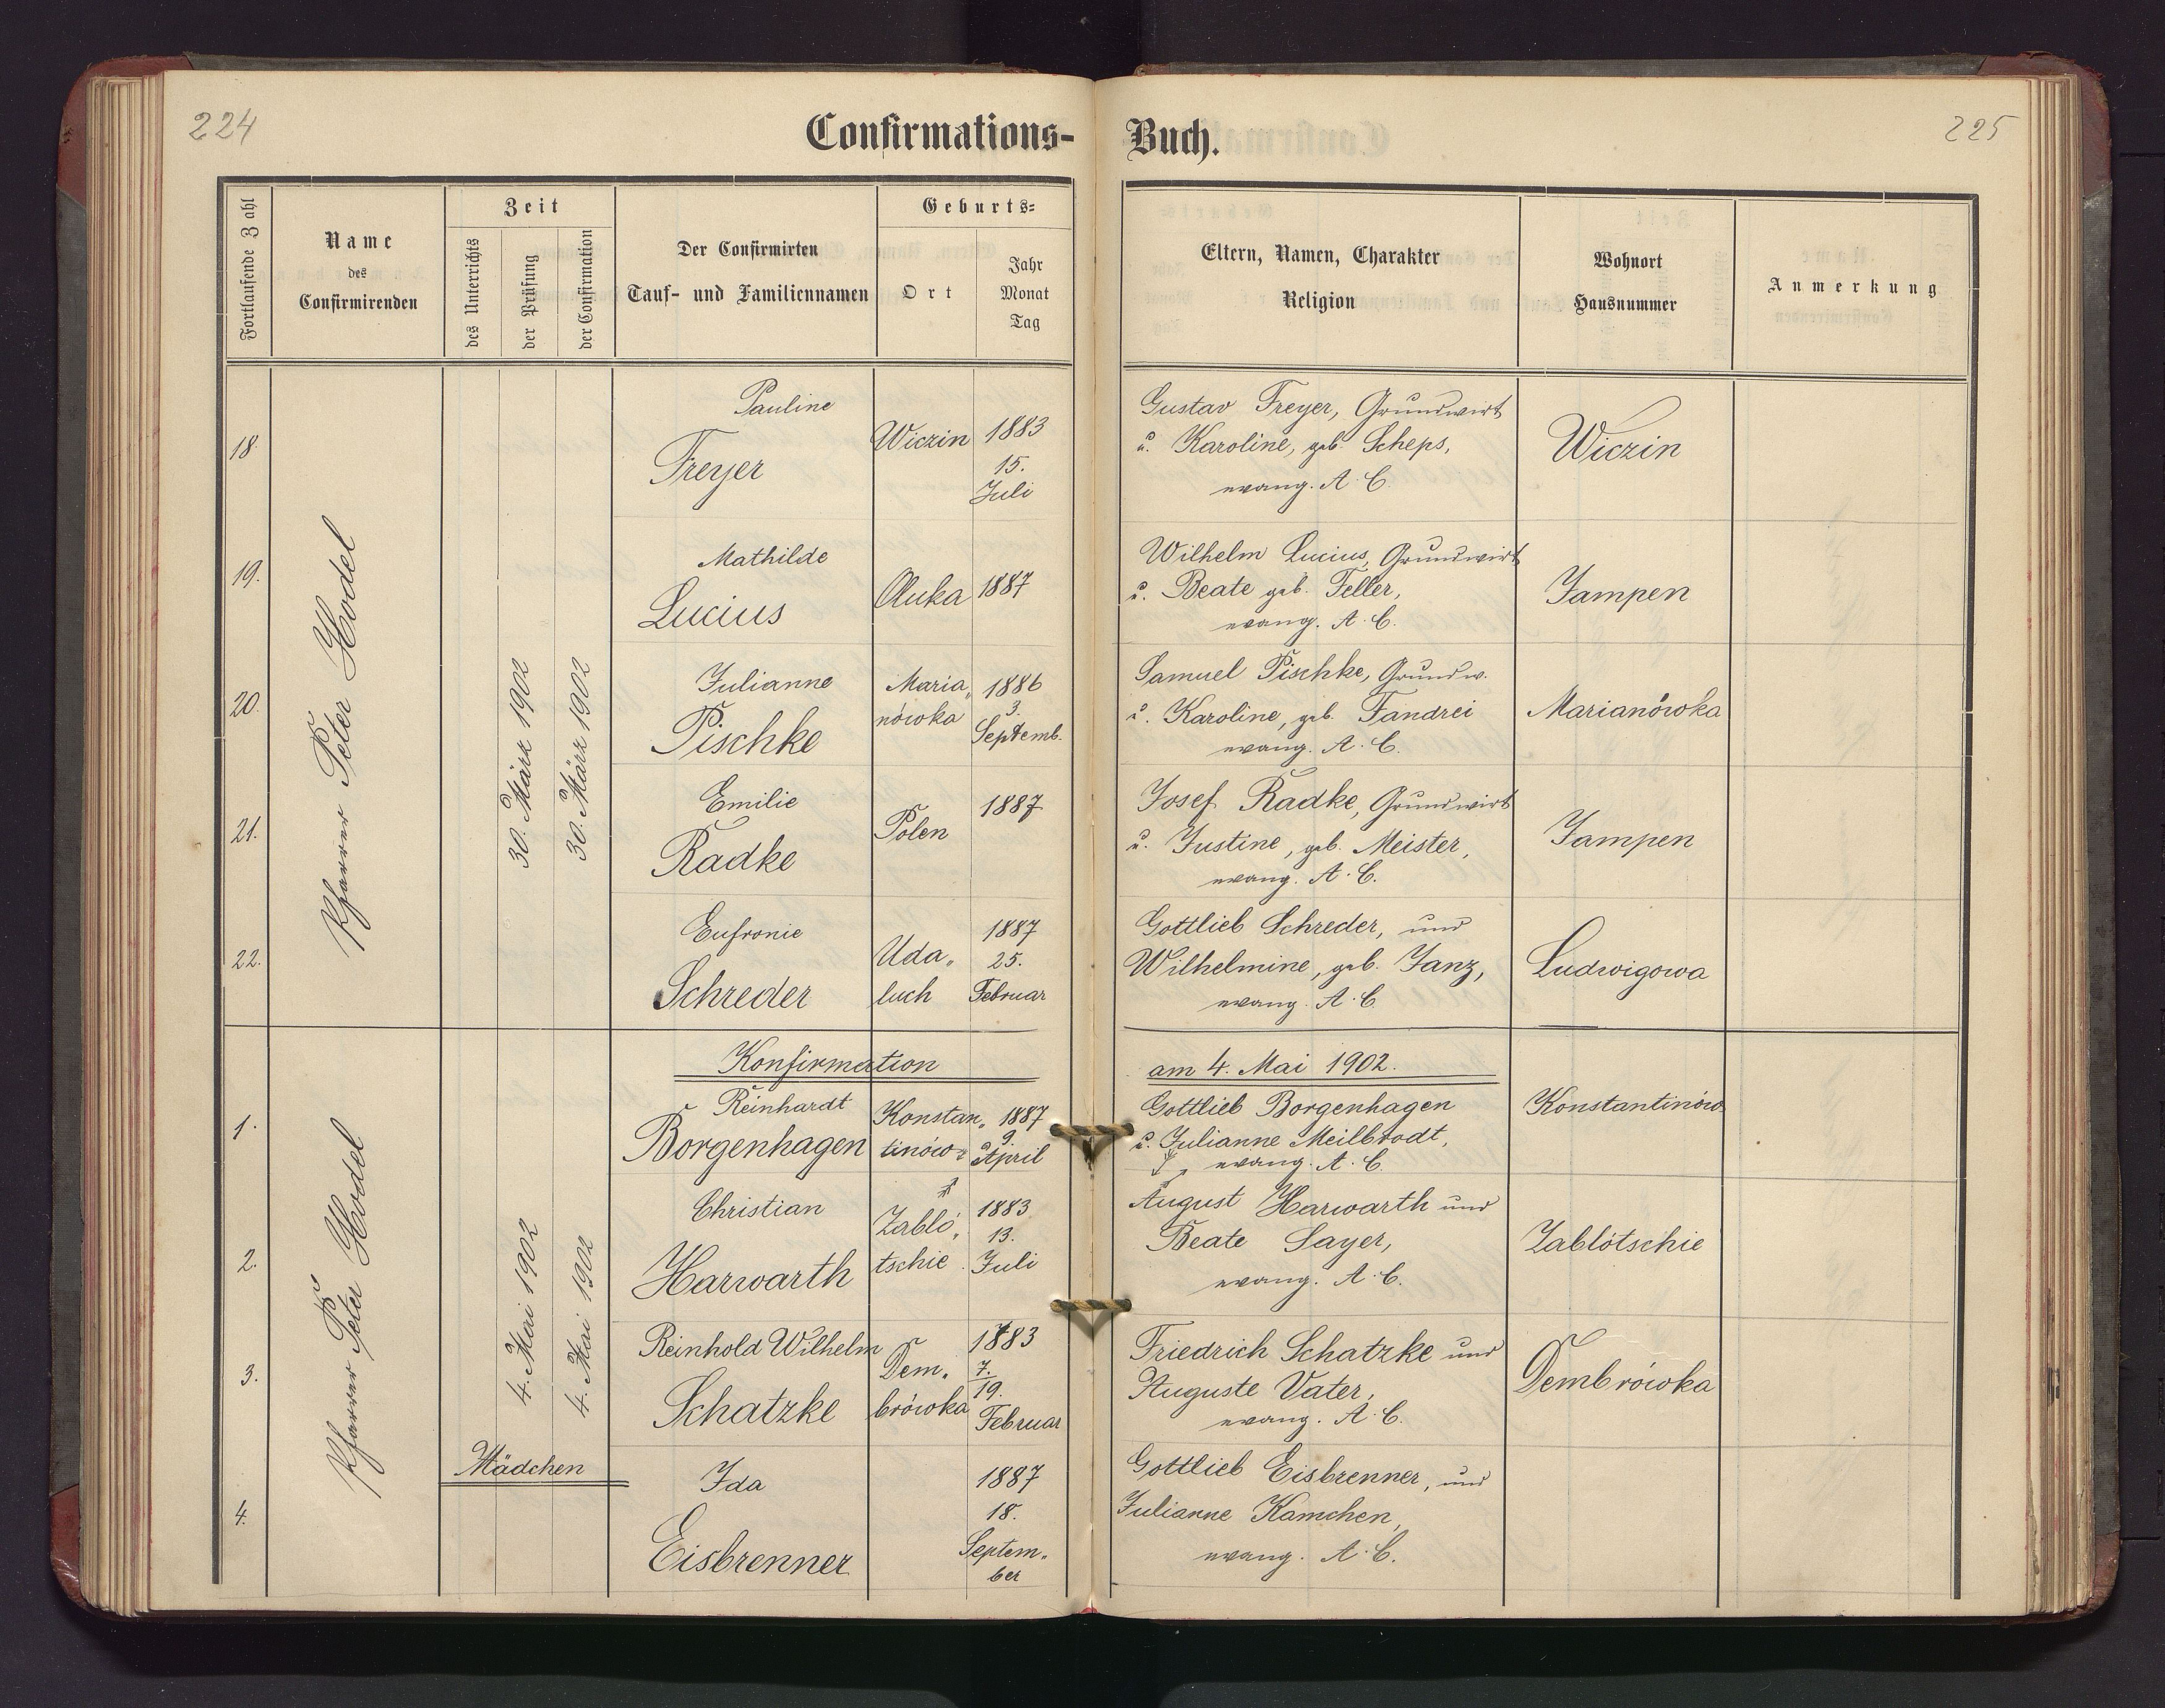 224
Confirmations-
Buch.
225
Fortlaufende Zahl
Name
des
Confirmirenden
Zeit
des Unterrichts
der Prüfung
der Confirmation
Der Confirmirten
Tauf- und Familiennamen
Geburts-
Ort
Jahr
Monat
Tag
Eltern, Namen, Charakter
Religion
Wohnort
Hausnummer
Anmerkung
Pfarrer Peter Hodel
30. März 1902
30. März 1902
18.
Pauline
Freyer
Wiczin
1883
15.
Juli
Gustav Freyer, Grundwirt
u. Karoline, geb. Scheps,
evang. A. C.
Wiczin
19.
Mathilde
Lucius
Oluka
1887
Wilhelm Lucius, Grundwirt
u. Beate geb. Feller,
evang. A. C.
Jampen
20.
Julianne
Pischke
Maria„
nówka
1886
3.
Septemb.
Samuel Pischke, Grundw.
u. Karoline, geb. Fandrei
evang. A. C.
Marianówka
21.
Emilie
Radke
Polen
1887
Josef Radke, Grundwirt
u. Justine, geb. Meister,
evang. A. C.
Jampen
22.
Eufronie
Schreder
Uda„
luch
1887
25.
Februar
Gottlieb Schreder, und
Wilhelmine, geb. Janz,
evang. A. C.
Ludwigowa
Konfirmation
am 4. Mai 1902.
Pfarrer Peter Hodel
4. Mai 1902
4. Mai 1902
1.
Reinhardt
Borgenhagen
Konstan„
tinów
1887
9.
April
Gottlieb Borgenhagen
u. Julianne Meilbrodt,
evang. A. C.
Konstantinów
2.
Christian
Harwarth
Zabló„
tschie
1883
13.
Juli
August Harwarth und
Beate Sayer,
evang. A. C.
Zablótschie
3.
Reinhold Wilhelm
Schatzke
Dem„
brówka
1883
7.
19.
Februar
Friedrich Schatzke und
Auguste Vater,
evang. A. C.
Dembrówka
Mädchen
4.
Ida
Eisbrenner
1887
18.
Septem„
ber
Gottlieb Eisbrenner, und
Julianne Kamchen,
evang. A. C.